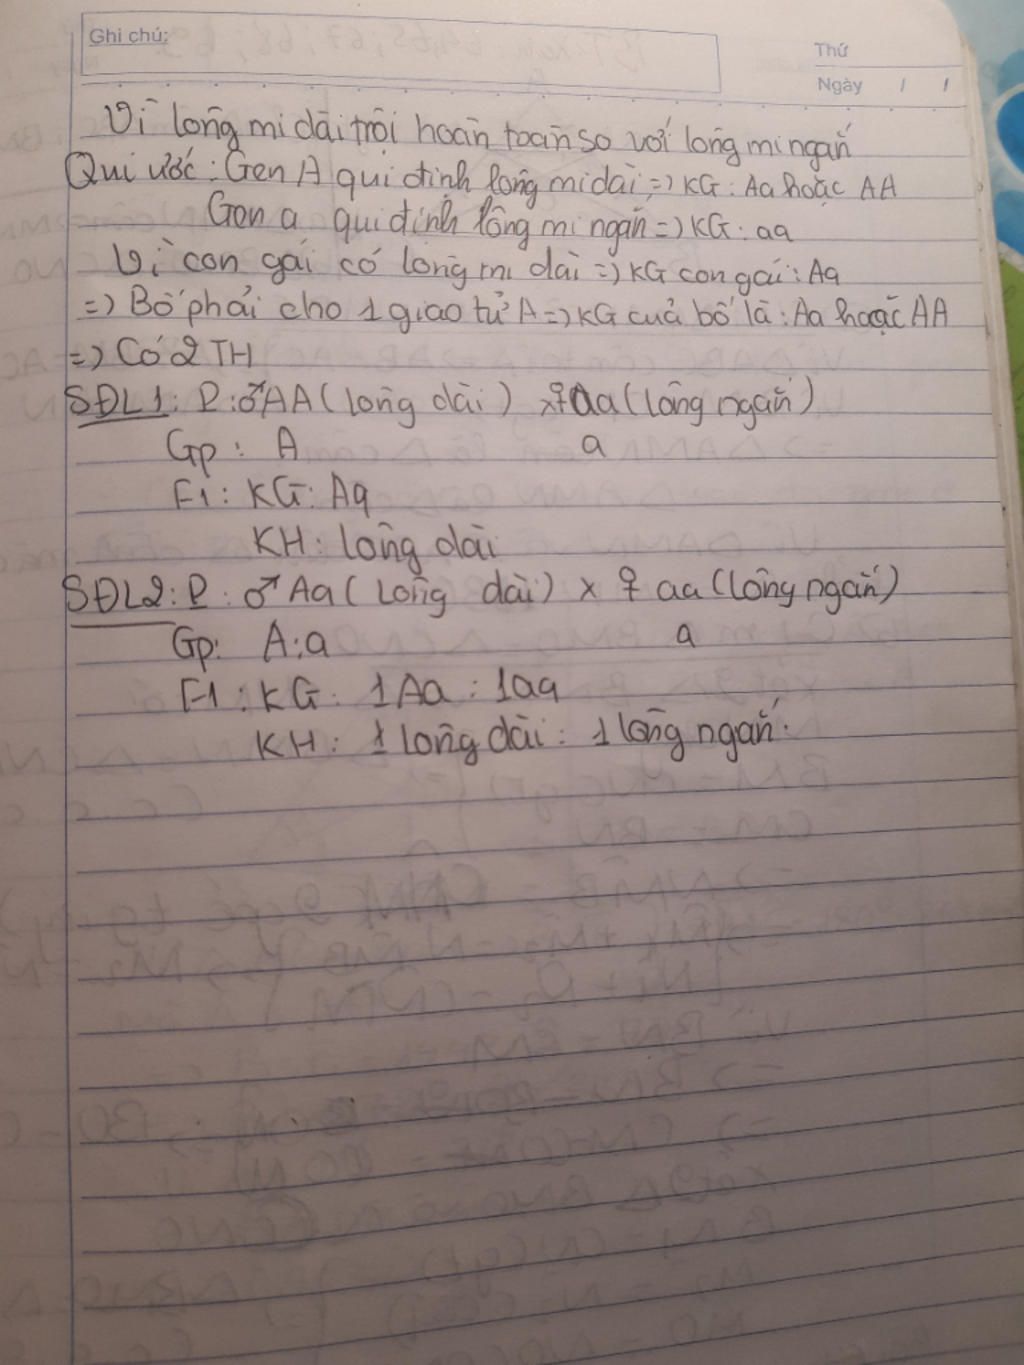 Ghi chú:
Thứ
Ngày / /
Vì lông mi dài trội hoàn toàn so với lông mi ngắn
Qui ước: Gen A qui định lông mi dài => KG: Aa hoặc AA
Gen a qui định lông mi ngắn => KG: aa
Vì con gái có lông mi dài => KG con gái: Aa
=> Bố phải cho 1 giao tử A => KG của bố là: Aa hoặc AA
=> Có 2 TH
SĐL1: P: ♂AA (lông dài) x ♀aa (lông ngắn)
Gp: A a
F1: KG: Aa
KH: lông dài
SĐL2: P: ♂ Aa (lông dài) x ♀ aa (lông ngắn)
Gp: A:a a
F1: KG: 1Aa : 1aa
KH: 1 lông dài : 1 lông ngắn.